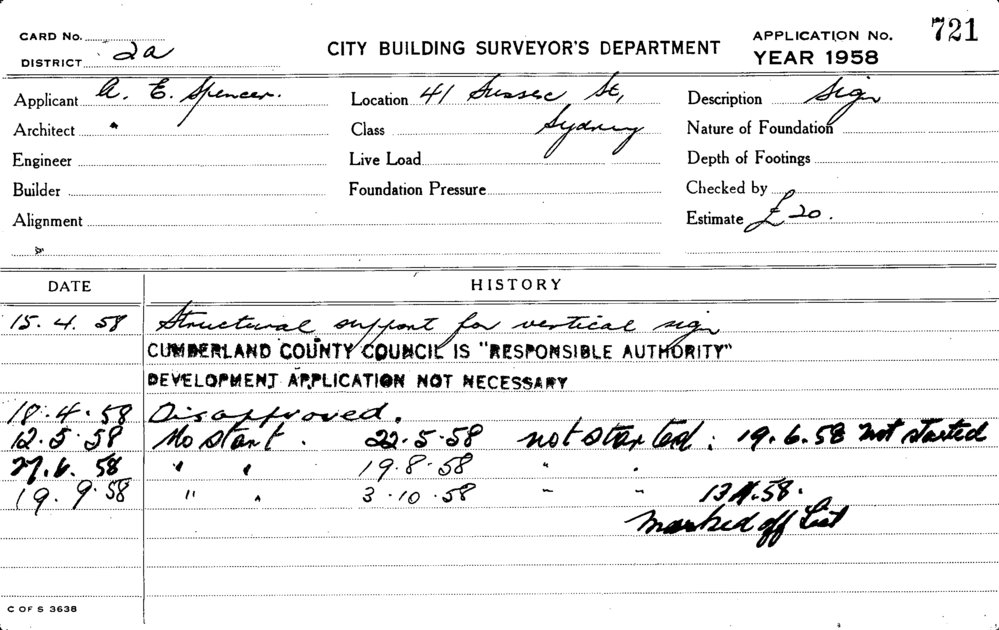 CARD No. CITY BUILDING SURVEYOR'S DEPARTMENT APPLICATION No. 721
DISTRICT 2a YEAR 1958
Applicant A. E. Spencer. Location 41 Sussex St, Description Sign
Architect Class Sydney Nature of Foundation
Engineer Live Load Depth of Footings
Builder Foundation Pressure Checked by
Alignment Estimate £20.
DATE HISTORY
15.4.58 Structural support for vertical sign
CUMBERLAND COUNTY COUNCIL IS "RESPONSIBLE AUTHORITY"
DEVELOPMENT APPLICATION NOT NECESSARY
18.4.58 Disapproved.
12.5.58 No start. 22.5.58 not started. 19.6.58 Not started
27.6.58 " " 19.8.58 " "
19.9.58 " " 3.10.58 " " 58.
Marked off List
C OF S 3638